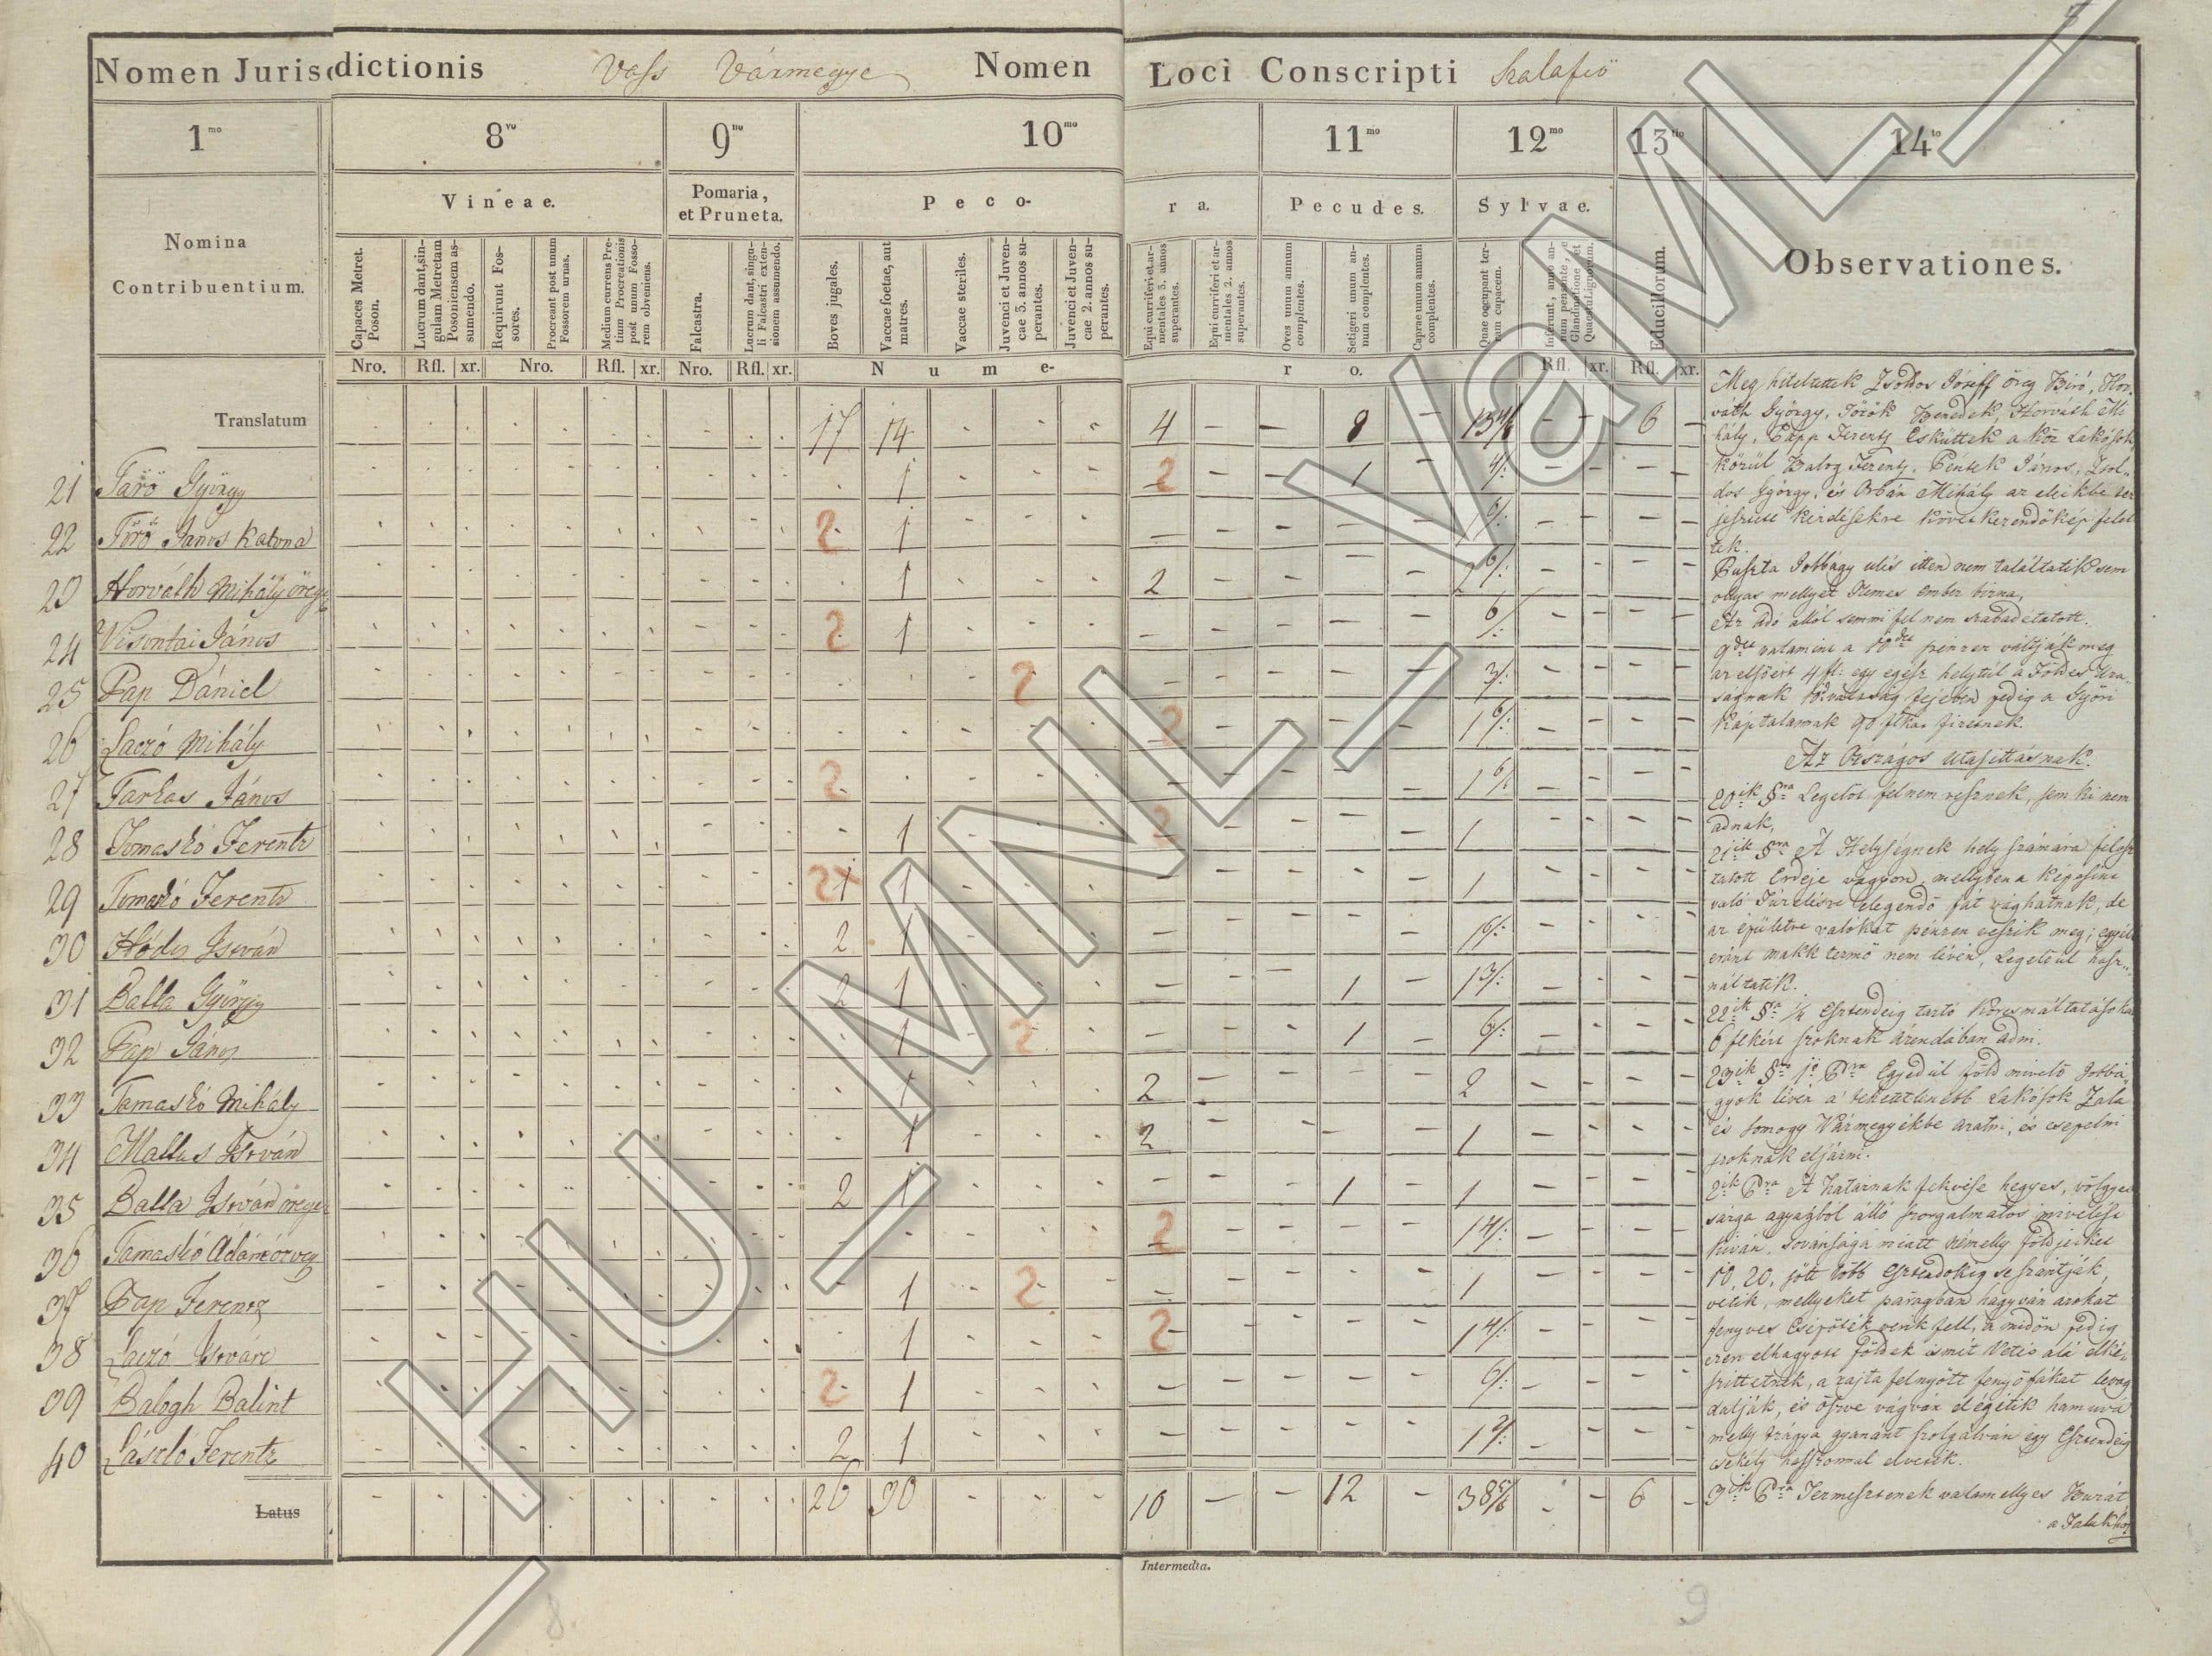 Nomen Jurisdictionis Vass Vármegye Nomen Loci Conscripti Szalafeö
1mo 8vo 9no 10mo 11mo 12mo 13tio 14to
Nomina Contribuentium.
Vineae.
Pomaria, et Pruneta.
Pecora.
Pecudes.
Sylvae.
Educillorum.
Observationes.
Capaces Metret. Poson.
Lucrum dant, singulam Metretam Posoniensem assumendo.
Requirunt Fossores.
Procreant post unum Fossorem urnas.
Medium currens Pretium Procreationis post unum Fossorem obveniens.
Falcastra.
Lucrum dant, singuli Falcastri extensionem assumendo.
Boves jugales.
Vaccae foetae, aut matres.
Vaccae steriles.
Juvenci et Juvencae 3. annos superantes.
Juvenci et Juvencae 2. annos superantes.
Equi curriferi et armentales 3. annos superantes.
Equi curriferi et armentales 2. annos superantes.
Oves unum annum complentes.
Setigeri unum annum complentes.
Caprae unum annum complentes.
Quae occupant terram capacem.
Inferunt, anno annum pensante, e Glandinatione, et Quaestu Lignorum.
Nro. Rfl. xr. Nro. Rfl. xr. Nro. Rfl. xr. Nume- ro. Rfl. xr. Rfl. xr.
Translatum 17 14 4 8 6
21 György 1 2 1 4/:
22 János Katona 2 1 6/:
23 Horváth Mihály öregb 1 2 2 6/:
24 Visontai János 2 1 6/:
25 Pap Dániel 2 3/:
26 Laczó Mihály 2 1 6/:
27 Farkas János 2 1 6/:
28 Tomaskó Ferentz 1 2 1
29 Tomaskó Ferentz 1 1 1
30 Hódos István 2 1 1 6/:
31 Balla György 2 1 1 1 3/:
32 Pap János 1 2 1 6/:
33 Tamaskó Mihály 1 2 2
34 Mallas István 1 2 1
35 Balla István öregeb 2 1 1 1
36 Tamaskó Ádám özvegy 2 1 4/:
37 Pap Ferencz 1 2 1
38 Laczó István 1 2 1 4/:
39 Balogh Balint 2 1 6/:
40 László Ferentz 2 1 1 2/:
Latus 26 30 10 12 38 5/8 6
Meg hiteltettek Zsoldos Jóseff öreg Biró, Hor-
váth György, Török Benedek, Horváth Mi
hály, Papp Ferentz Esküttek a köz Lakósok
közül Balog Ferentz, Péntek János, Zsol-
dos György, és Orbán Mihály az eleikbe ter
jesztett kérdésekre következendőkép felel
tek.
Puszta Jobbágy ülés itten nem találtatik sem
ollyas mellyet Nemes Ember birna,
Az adó allól semmi fel nem szabadétatott.
9det valamint a 10det pénzen váltják meg
az elsőért 4 fl: egy egész helytül a Földes Ura-
ságnak fejében pedig a Győri
Káptalannak 90 ftkat fizetnek.
Az Országos Utasittásnak.
20ik §ra Legelőt fel nem vesznek, sem ki nem
adnak,
21ik §ra A Helységnek hely számára feloszt
tatott Erdeje vagyon, mellyben a
való Tüzelésre elegendő fát vághatnak, de
az épületre valókat pénzen veszik meg; egyéb
eránt makk termő nem lévén, Legelőül hasz-
náltatik.
22ik §ra Esztendeig tartó korcsmáltatásokat
6 ftkért szoknak árendában adni.
23ik §ra Egyedül föld mivelő Jobbá
gyok lévén a tehetetlenebb Lakósok Zala
és Somogy Vármegyékbe aratni, és csépelni
szoknak eljárni.
2ik Pdra A határnak fekvése hegyes, völgyes
sárga agyagbol álló szorgalmatos mivelést
kiván, soványsága miatt némelly földjeiket
10, 20, sött több Esztendőkig se szántják,
vetik, mellyeket parragban hagyván azokat
fenyves verik fell, a midőn pedig
ezen elhagyott Földek ismét Vetés alá elké-
szittetnek, a rajta felnyőtt fenyőfákat levag
dalják, és öszve vágván elégetik hamuvá
melly trágya gyanánt szolgálván egy Esztendeig
csekély haszonnal elvetik.
3ik Pdra Termesztenek valamellyes Buzát
Intermedia.
8.
9